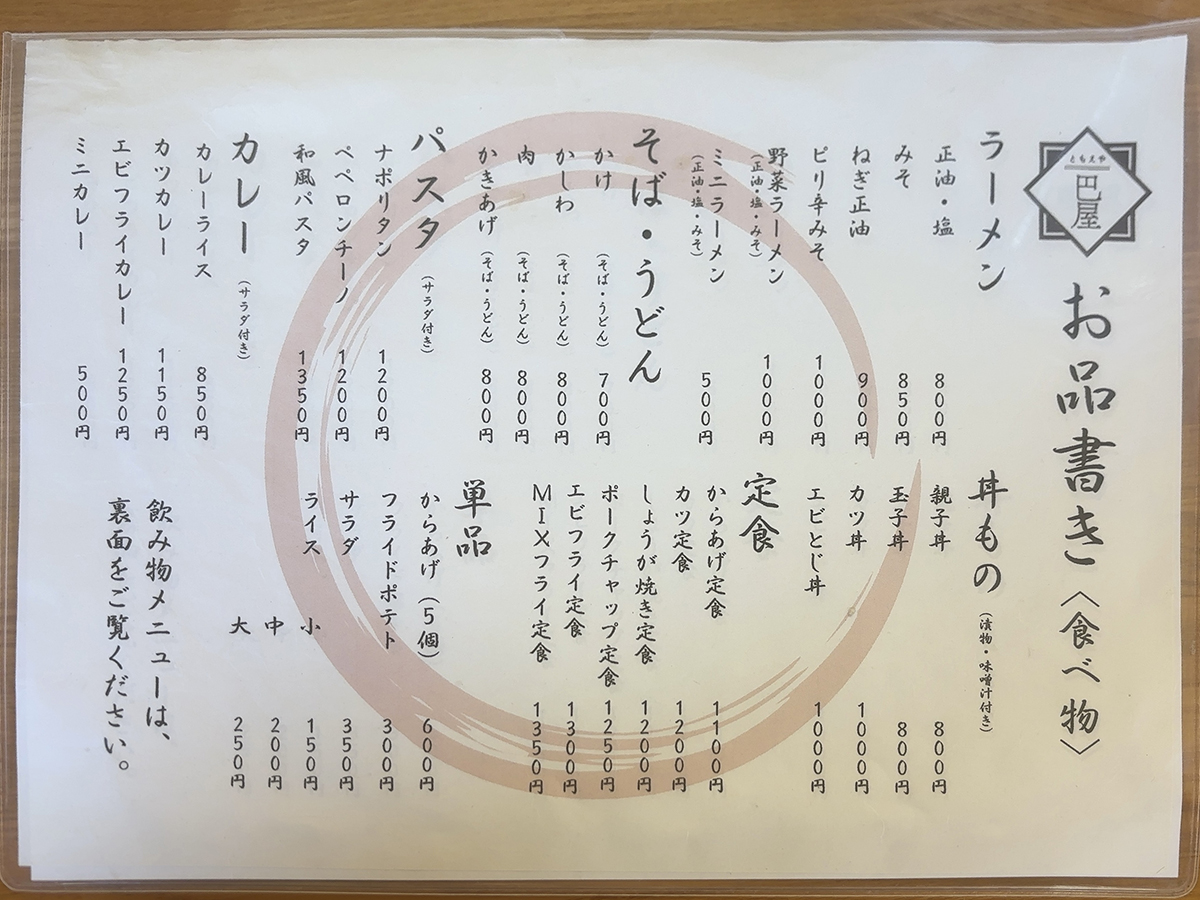 ともえや
巴屋
お品書き〈食べ物〉
ラーメン
正油・塩 800円
みそ 850円
ねぎ正油 900円
ピリ辛みそ 1000円
野菜ラーメン 1000円
(正油・塩・みそ)
ミニラーメン 500円
(正油・塩・みそ)
そば・うどん
かけ(そば・うどん) 700円
かしわ(そば・うどん) 800円
肉(そば・うどん) 800円
かきあげ(そば・うどん) 800円
パスタ(サラダ付き)
ナポリタン 1200円
ペペロンチーノ 1200円
和風パスタ 1350円
カレー(サラダ付き)
カレーライス 850円
カツカレー 1150円
エビフライカレー 1250円
ミニカレー 500円
丼もの(漬物・味噌汁付き)
親子丼 800円
玉子丼 800円
カツ丼 1000円
エビとじ丼 1000円
定食
からあげ定食 1100円
カツ定食 1200円
しょうが焼き定食 1200円
ポークチャップ定食 1250円
エビフライ定食 1300円
MIXフライ定食 1350円
単品
からあげ(5個) 600円
フライドポテト 300円
サラダ 350円
ライス 小 150円
中 200円
大 250円
飲み物メニューは、
裏面をご覧ください。